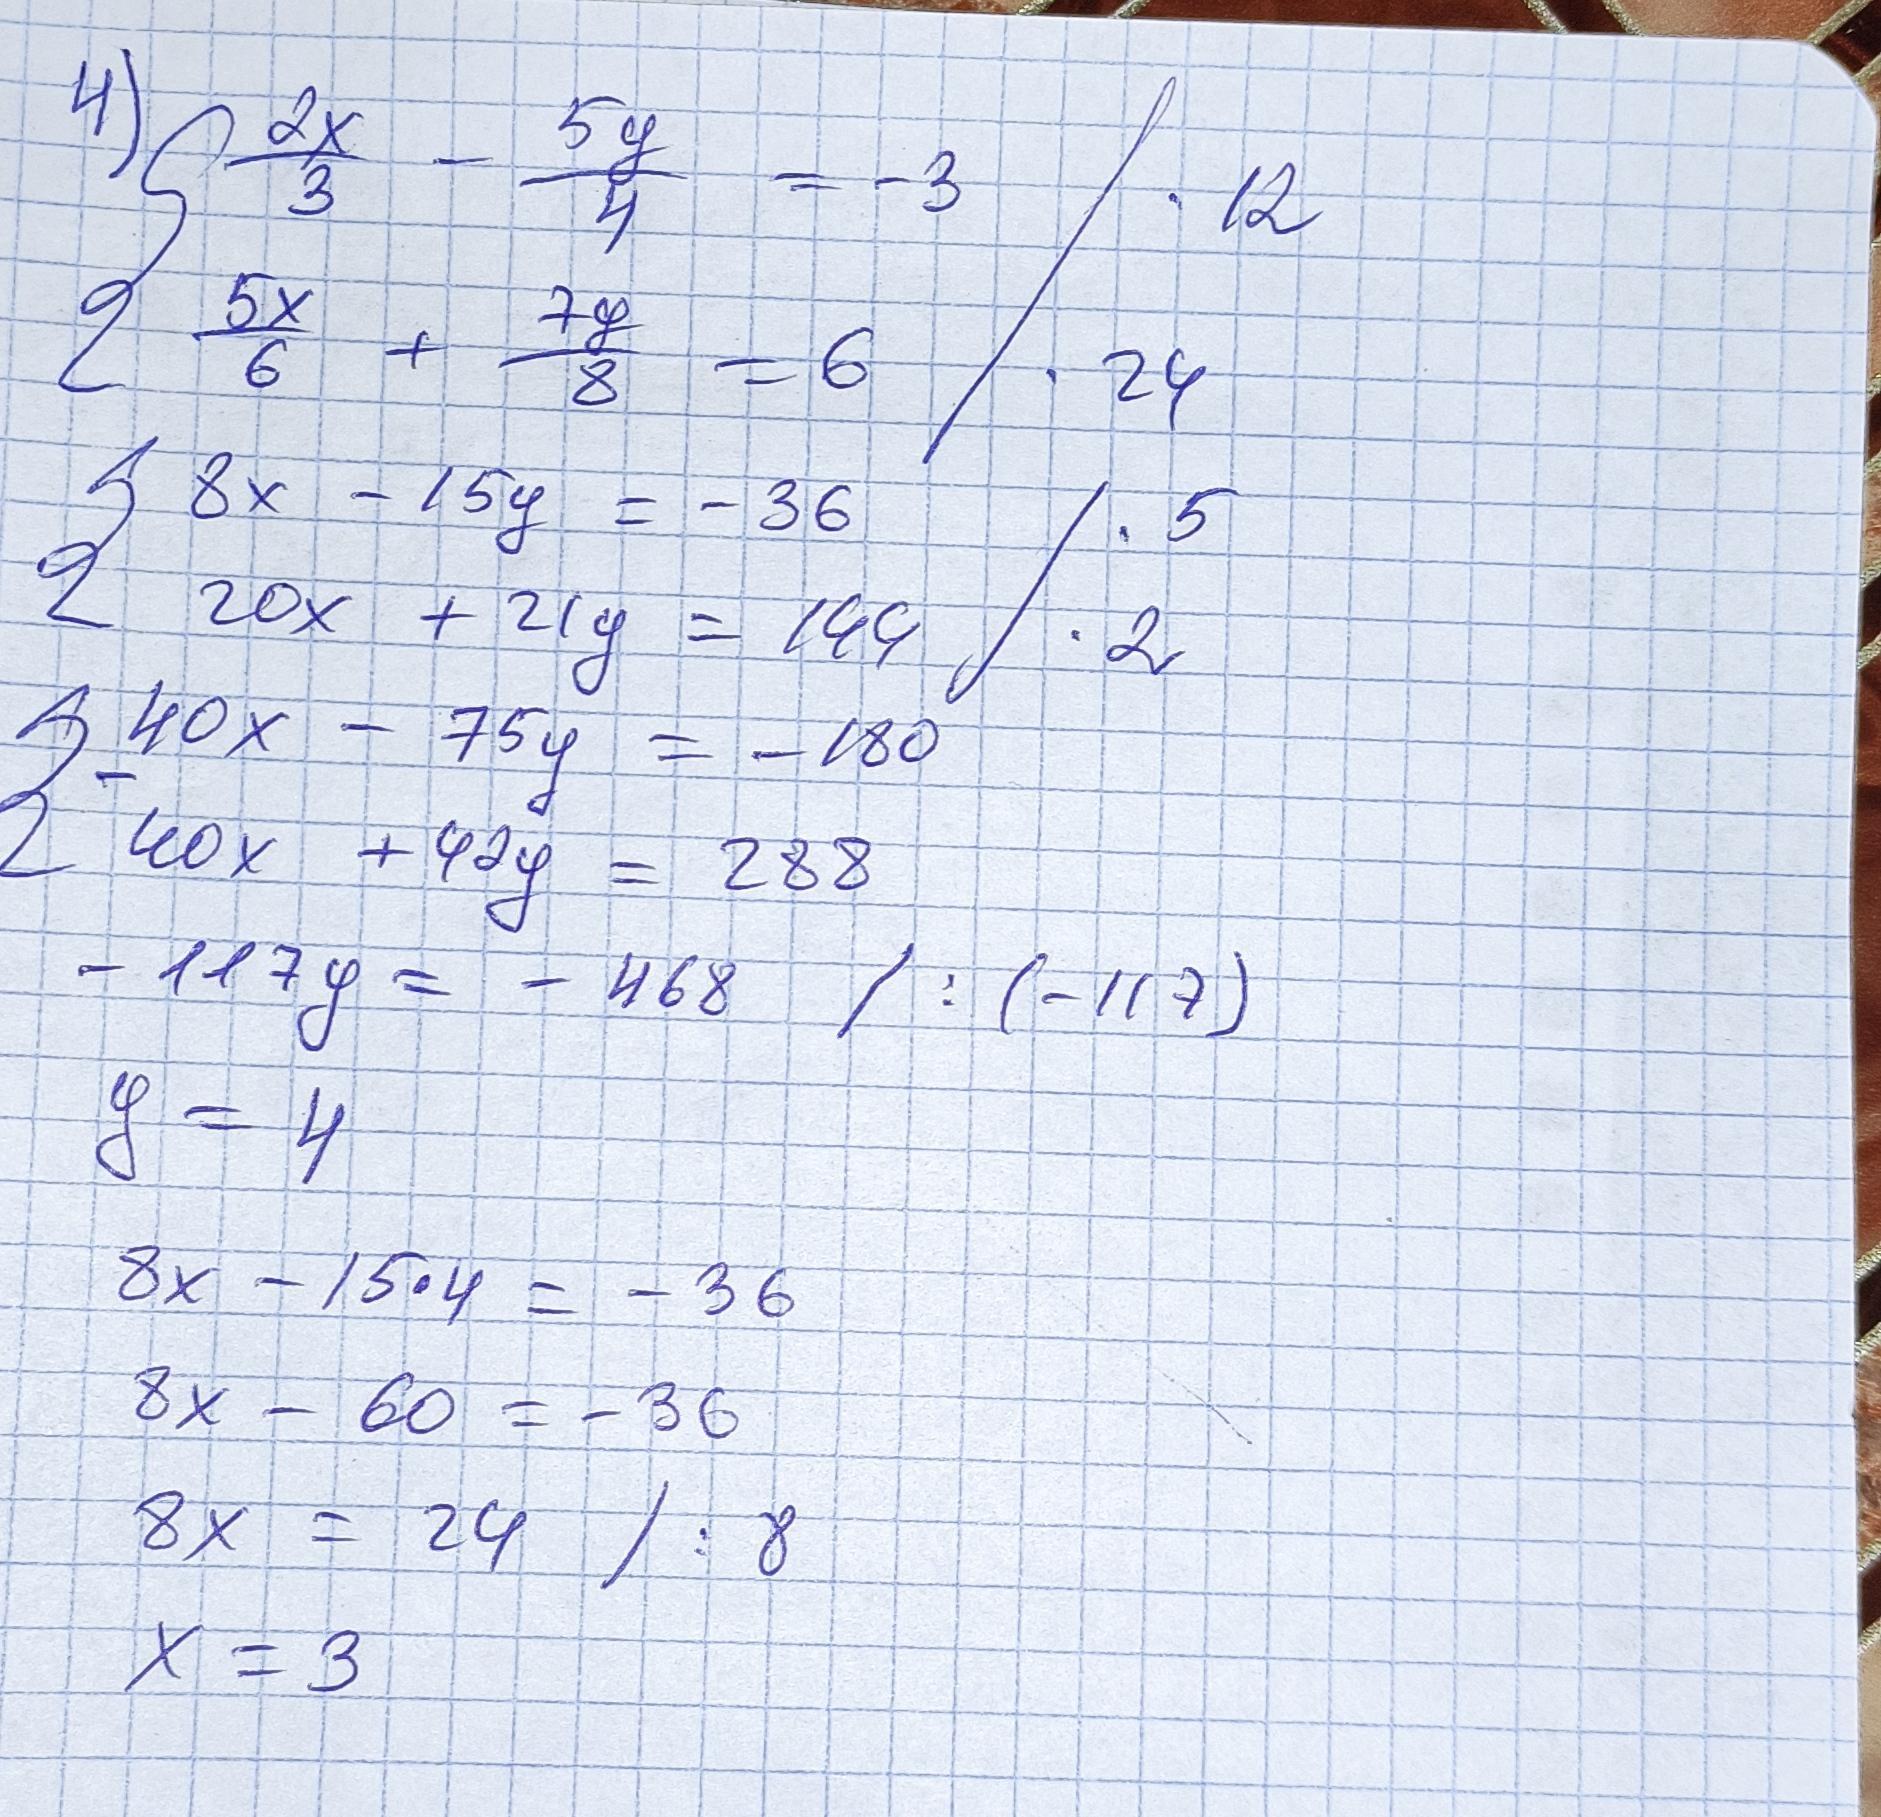 4)
{ 2x/3 - 5y/4 = -3 / · 12
5x/6 + 7y/8 = 6 / · 24
{ 8x - 15y = -36 / · 5
20x + 21y = 144 / · 2
{ 40x - 75y = -180
-
40x + 42y = 288
-117y = -468 / : (-117)
y = 4
8x - 15·4 = -36
8x - 60 = -36
8x = 24 / : 8
x = 3